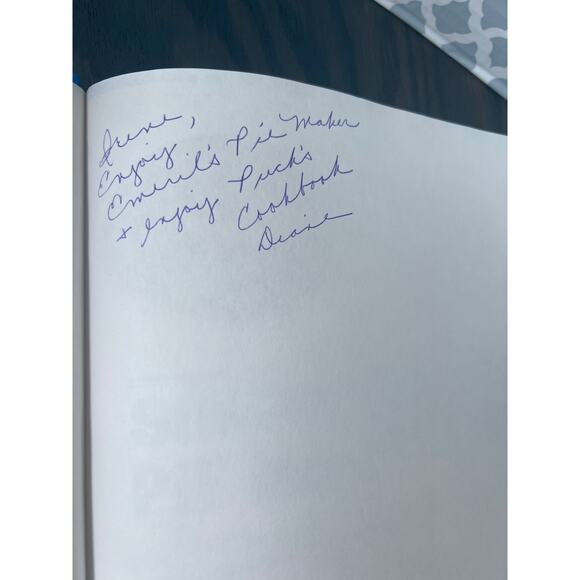 Irene,
Enjoy,
Emeril's Pie Maker
+ enjoy Puck's
Cookbook
Diane